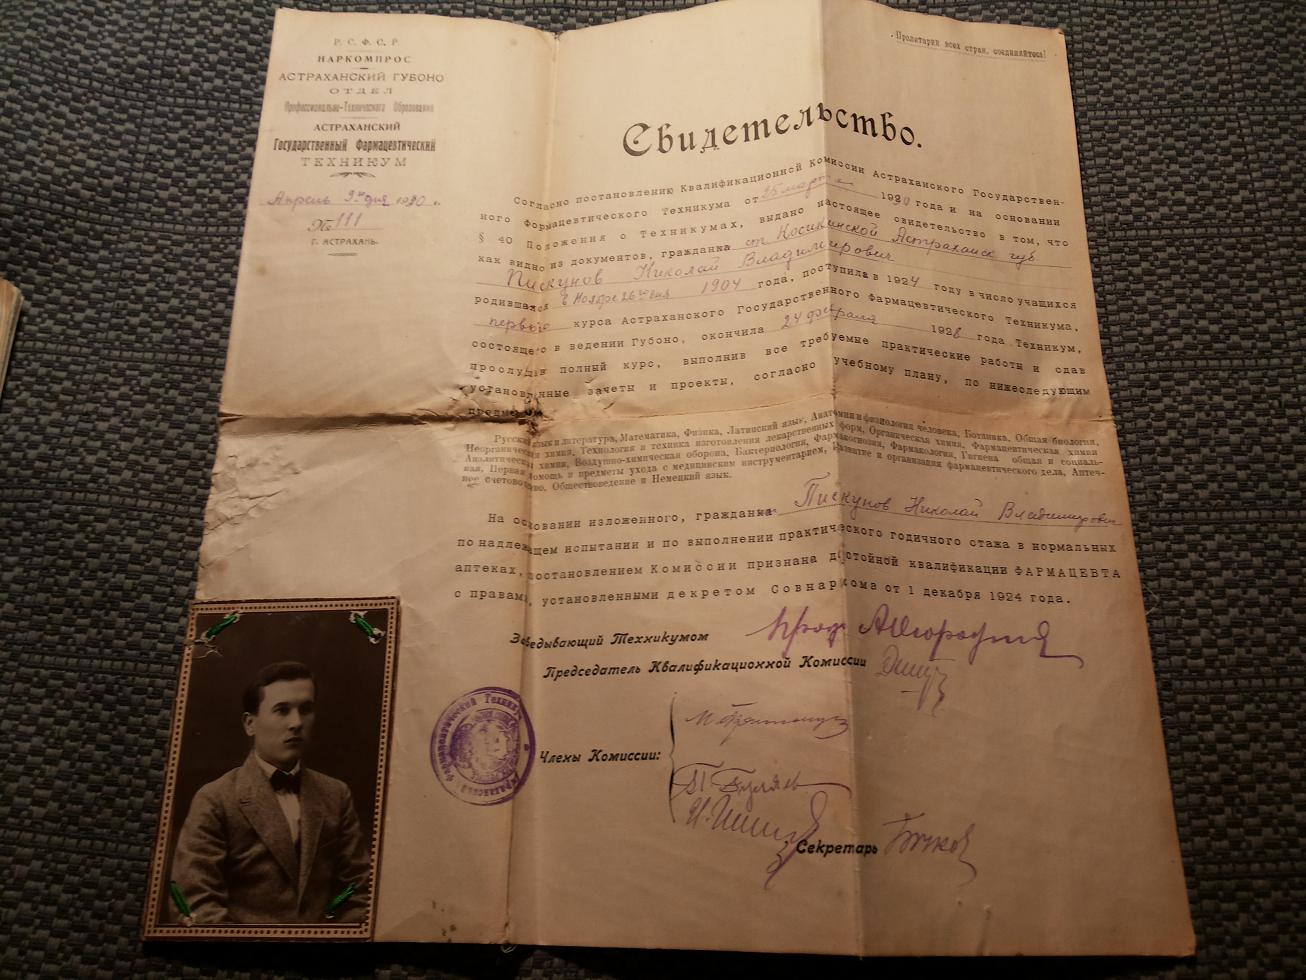 Р. С. Ф. С. Р.
НАРКОМПРОС
АСТРАХАНСКИЙ ГУБОНО
ОТДЕЛ
Профессионально-Технического Образования
АСТРАХАНСКИЙ
Государственный Фармацевтический
ТЕХНИКУМ
Апрель 9го дня 1930 г.
№ 111
Г. АСТРАХАНЬ.
Пролетарии всех стран, соединяйтесь!
Свидетельство.
Согласно постановлению Квалификационной Комиссии Астраханского Государствен-
ного Фармацевтического Техникума от 25 марта 1930 года и на основании
§ 40 Положения о Техникумах, выдано настоящее свидетельство в том, что
как видно из документов, гражданка ст Косикинской Астраханск губ
Пискунов Николай Владимирович
родившаяся в Ноябре 26го дня 1904 года, поступила в 1924 году в число учащихся
первого курса Астраханского Государственного Фармацевтического Техникума,
состоящего в ведении Губоно, окончила 24 февраля 1928 года Техникум,
прослушав полный курс, выполнив все требуемые практические работы и сдав
установленные зачеты и проекты, согласно учебному плану, по нижеследующим
предметам
Русский язык и литература, Математика, Физика, Латинский язык, Анатомия и физиология человека, Ботаника, Общая биология,
Неорганическая химия, Технология и техника изготовления лекарственных форм, Органическая химия, Фармацевтическая химия
Аналитическая химия, Воздушно-химическая оборона, Бактериология, Фармакогнозия, Фармакология, Гигиена общая и социаль-
ная, Первая помощь и предметы ухода с медицинским инструментарием, Развитие и организация фармацевтического дела, Аптеч-
ное счетоводство, Обществоведение и Немецкий язык.
На основании изложенного, гражданка Пискунов Николай Владимирович
по надлежащем испытании и по выполнении практического годичного стажа в нормальных
аптеках, постановлением Комиссии признана достойной квалификации ФАРМАЦЕВТА
с правами, установленными декретом Совнаркома от 1 декабря 1924 года.
Заведывающий Техникумом
Председатель Квалификационной Комиссии
Фармацевтический Техник
Члены Комиссии:
Секретарь